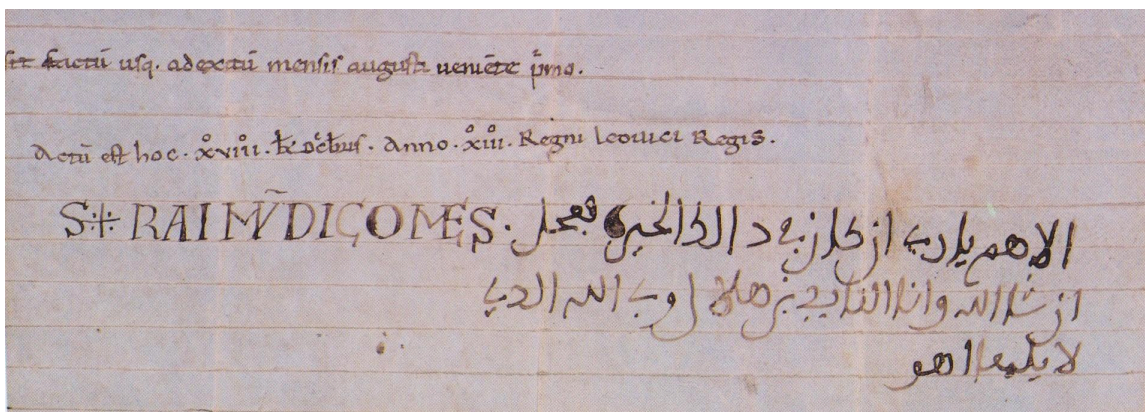 sit factū usq. ad exitū mensis augusti ueniēte p̄mo.
Actū est hoc. xviii. kł ocłbus. Anno. xiii. Regni leouuici Regis.
S⁜ RAIMŪDI COMES.
الاهم يا رب ان كان في دالك الخير فعجل
ان شا الله وانا الله الدي
لا هو